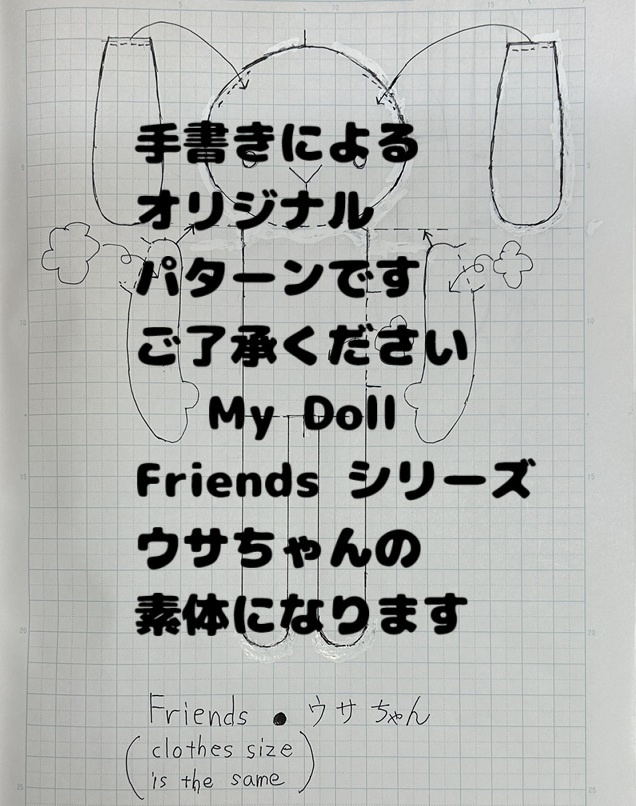 手書きによる
オリジナル
パターンです
ご了承ください
My Doll
Friends シリーズ
ウサちゃんの
素体になります
Friends ● ウサちゃん
(clothes size
is the same)